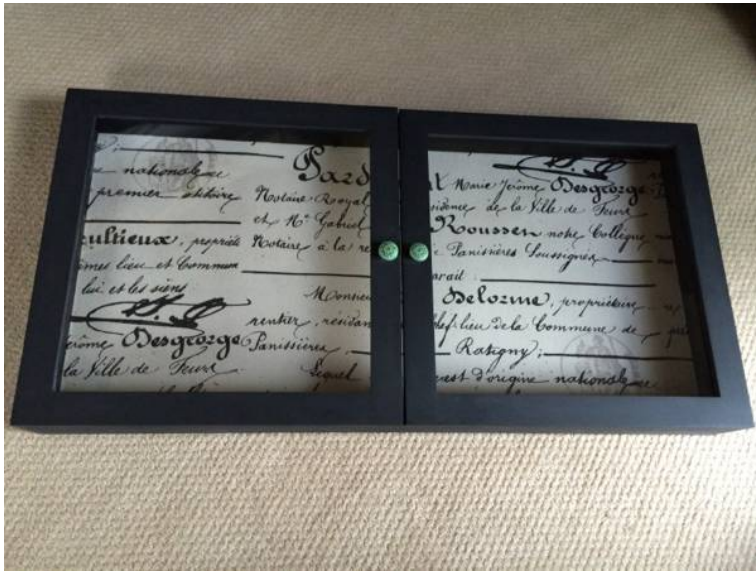 nationale
premier
ultieux, propriété
lieu et Commun
lui et les siens
Jérôme Desgeorge
la Ville de Feurs
Pard
Notaire Royal
et Me Gabriel
Notaire à la re
Monsieur
rentier, résidan
Panissières,
Lequel
Marie Jérôme Desgeorge
sidence de la Ville de Feurs
Rousset notre Collègue
Panissières Soussignés
arait :
Delorme, propriétaire
hef-lieu de la Commune de
Ratigny;
est d'origine nationale